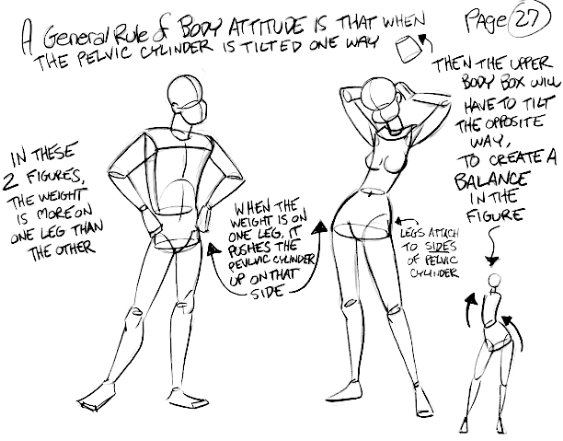 A General Rule of Body Attitude is that when
the pelvic cylinder is tilted one way
Page 27
then the upper
body box will
have to tilt
the opposite
way,
to create a
balance
in the
figure
In these
2 figures,
the weight
is more on
one leg than
the other
When the
weight is on
one leg, it
pushes the
pevlvic cylinder
up on that
side
Legs attach
to sides
of pelvic
cylinder